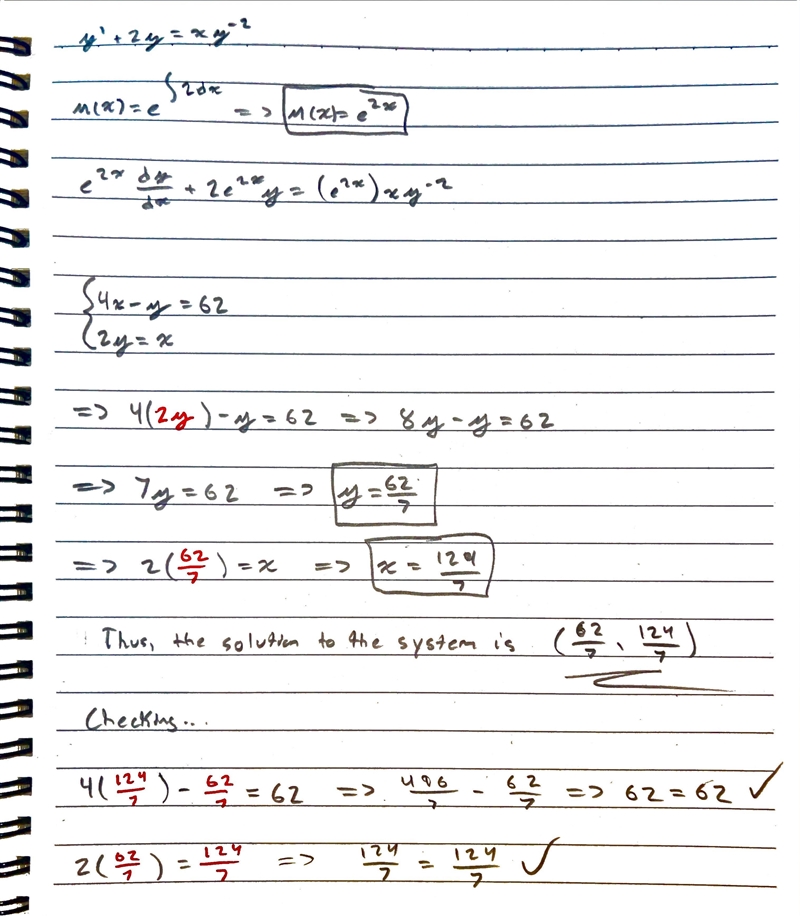 y' + 2y = xy⁻²
μ(x) = e^∫2dx => μ(x) = e^2x
e^2x dy/dx + 2e^2x y = (e^2x)xy⁻²
{4x - y = 62
{2y = x
=> 4(2y) - y = 62 => 8y - y = 62
=> 7y = 62 => y = 62/7
=> 2(62/7) = x => x = 124/7
Thus, the solution to the system is (62/7, 124/7)
Checking...
4(124/7) - 62/7 = 62 => 496/7 - 62/7 => 62 = 62 ✓
2(62/7) = 124/7 => 124/7 = 124/7 ✓